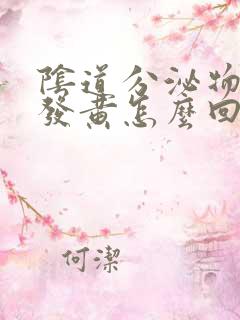 陰道分泌物
發黃怎麼回
何潔